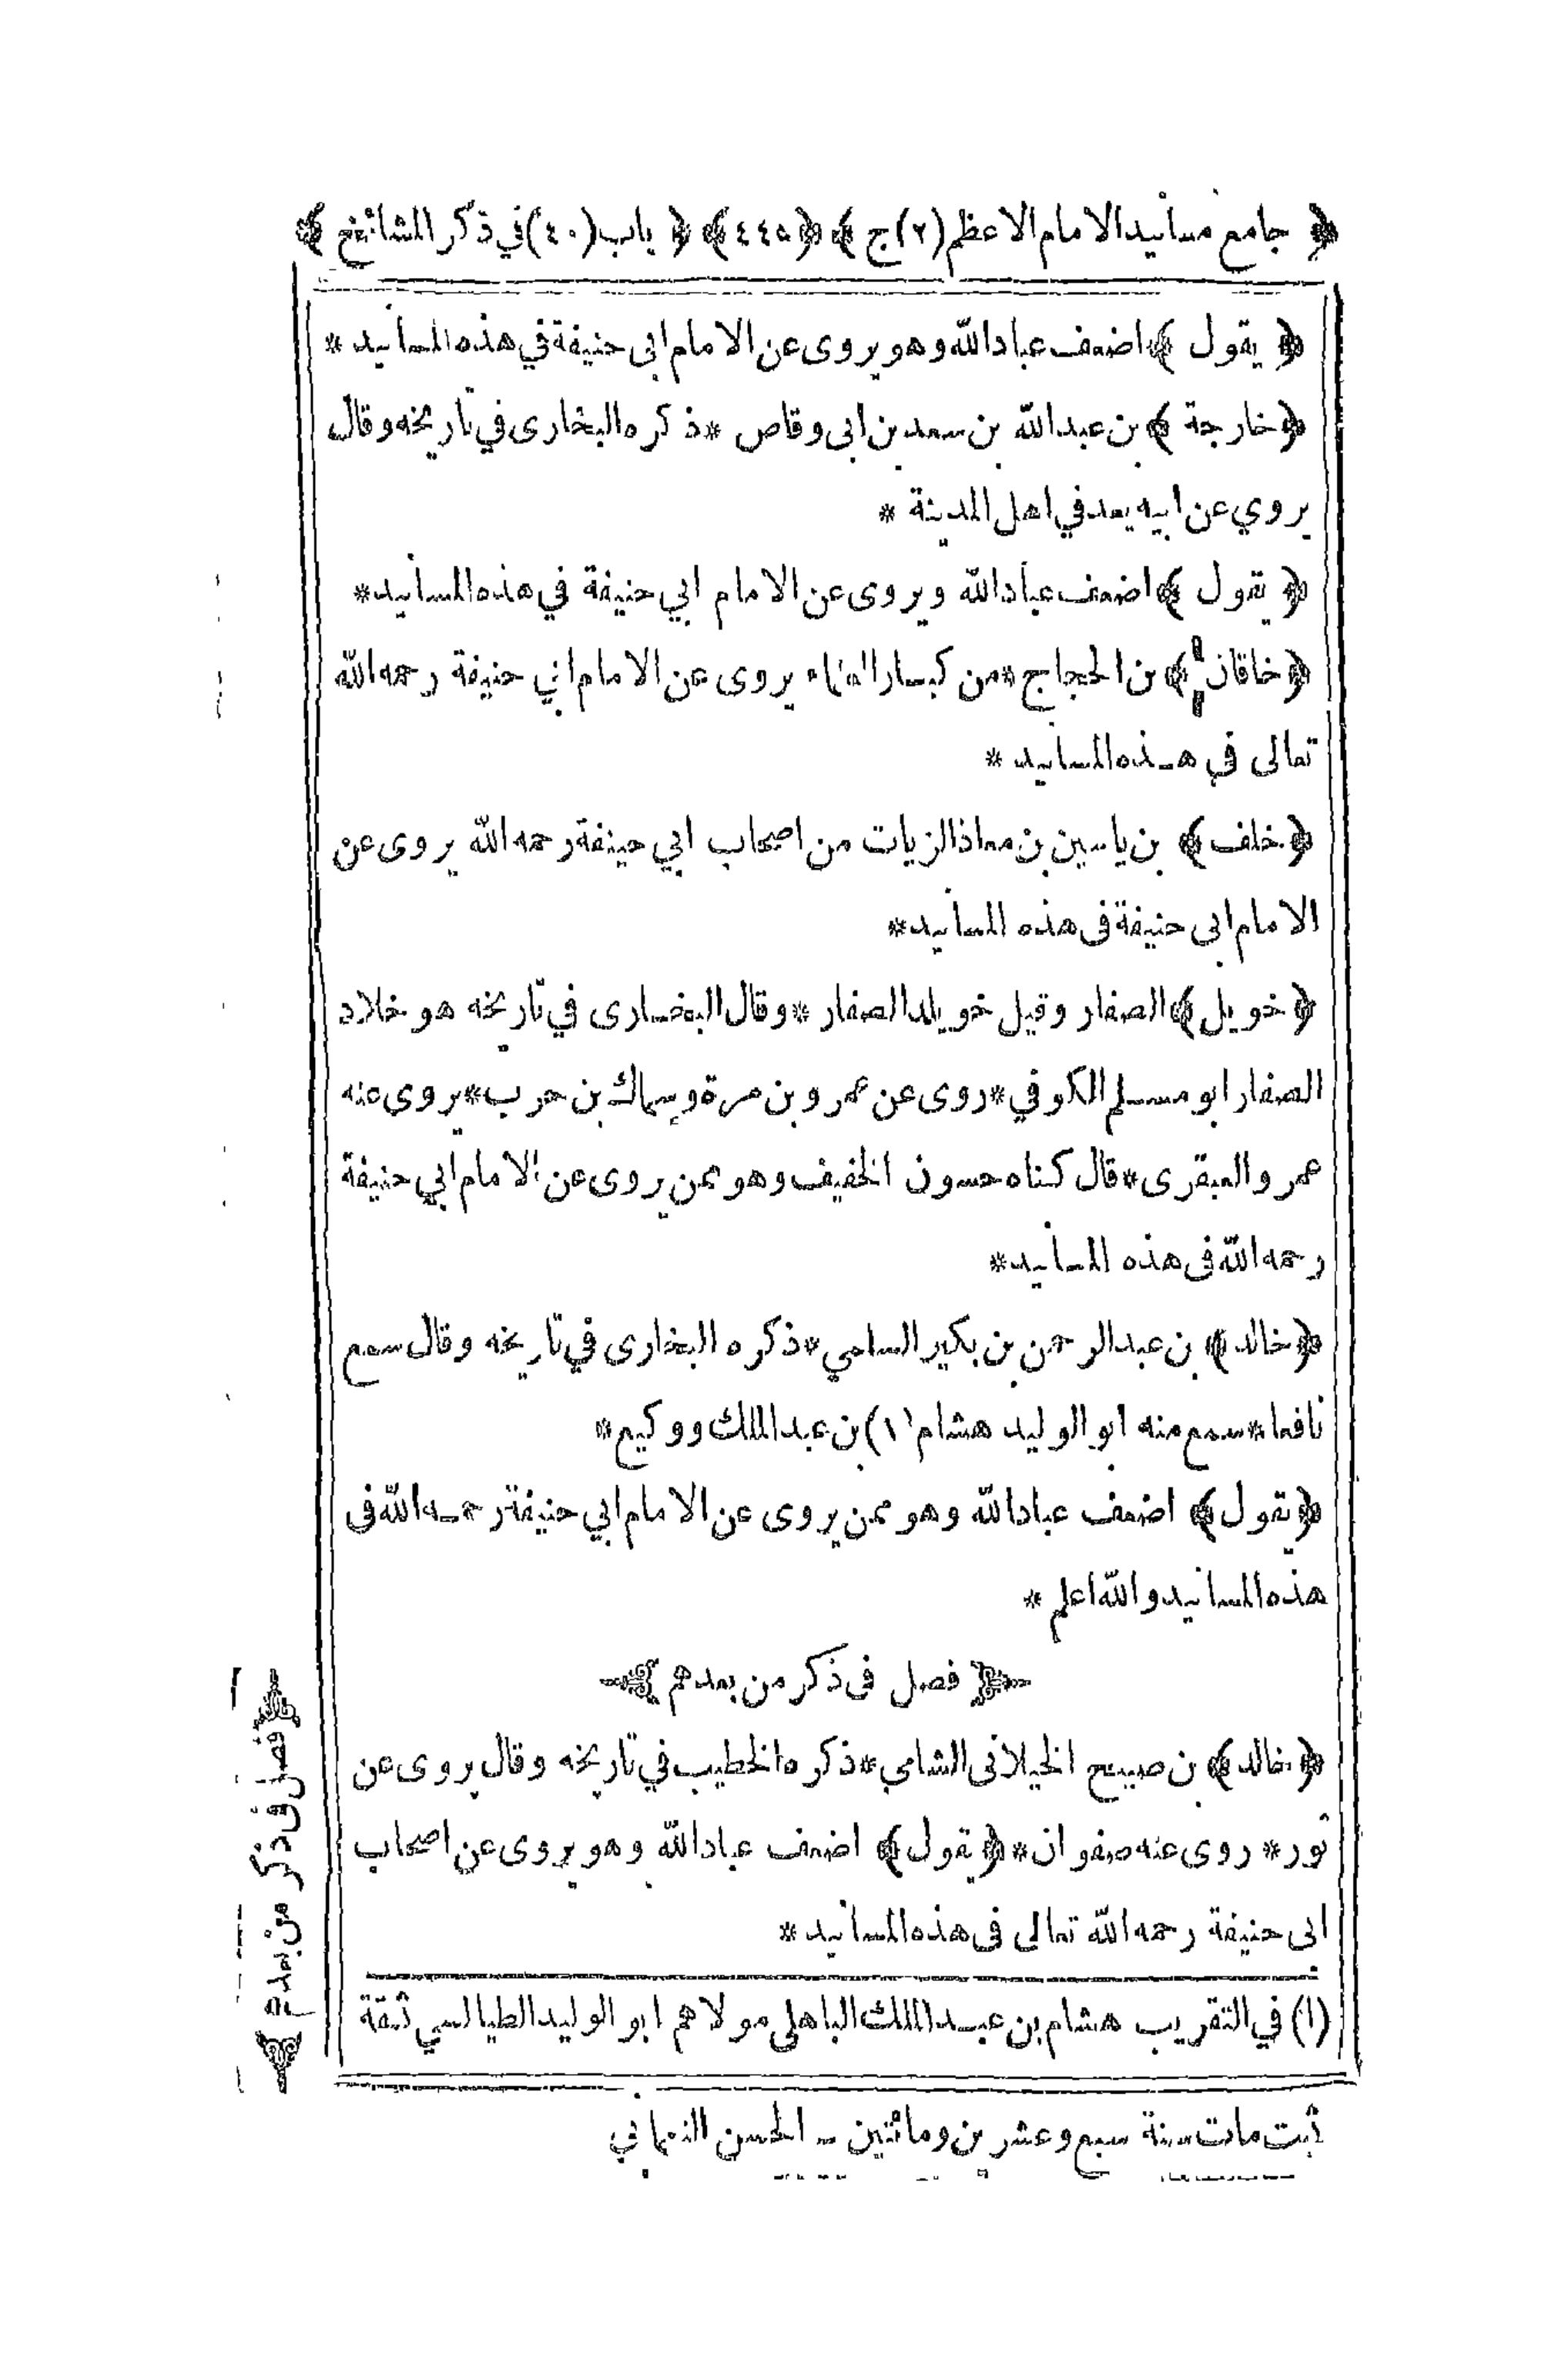 ﴿ جامع مسانيد الامام الاعظم (٢) ج ﴾ ﴿ ٤٤٥ ﴾ ﴿ باب (٤٠) في ذكر المشائخ ﴾
﴿ يقول ﴾ اضعف عباد الله وهو يروى عن الامام ابى حنيفة في هذه المسانيد *
﴿ خارجة ﴾ بن عبد الله بن سعد بن ابى وقاص * ذكره البخارى في تاريخه وقال
يروي عن ابيه يعد في اهل المدينة *
﴿ يقول ﴾ اضعف عباد الله ويروى عن الامام ابي حنيفة في هذه المسانيد *
﴿ خاقان ﴾ بن الحجاج * من كبار العلماء يروى عن الامام ابي حنيفة رحمه الله
تعالى في هذه المسانيد *
﴿ خلف ﴾ بن ياسين بن معاذ الزيات من اصحاب ابي حنيفة رحمه الله يروى عن
الامام ابى حنيفة فى هذه المسانيد *
﴿ خويل ﴾ الصفار وقيل خويلد الصفار * وقال البخارى في تاريخه هو خلاد
الصفار ابو مسلم الكوفي * روى عن عمرو بن مرة وسماك بن حرب * يروى عنه
عمرو العبقرى * قال كناه حسون الخفيف وهو ممن يروى عن الامام ابي حنيفة
رحمه الله فى هذه المسانيد *
﴿ خالد ﴾ بن عبد الرحمن بن بكير السلمي * ذكره البخارى في تاريخه وقال سمع
نافعا * سمع منه ابو الوليد هشام (١) بن عبد الملك ووكيع *
﴿ يقول ﴾ اضعف عباد الله وهو ممن يروى عن الامام ابي حنيفة رحمه الله فى
هذه المسانيد والله اعلم *
﴿ فصل فى ذكر من بعدهم ﴾
﴿ خالد ﴾ بن صبيح الخيلانى الشامي * ذكره الخطيب في تاريخه وقال يروى عن
ثور * روى عنه صفوان * ﴿ يقول ﴾ اضعف عباد الله وهو يروى عن اصحاب
ابى حنيفة رحمه الله تعالى فى هذه المسانيد *
(١) في التقريب هشام بن عبد الملك الباهلى مولاهم ابو الوليد الطيالسي ثقة
ثبت مات سنة سبع وعشرين ومائتين - الحسن النعماني
﴿ فصل فى ذكر من بعدهم ﴾